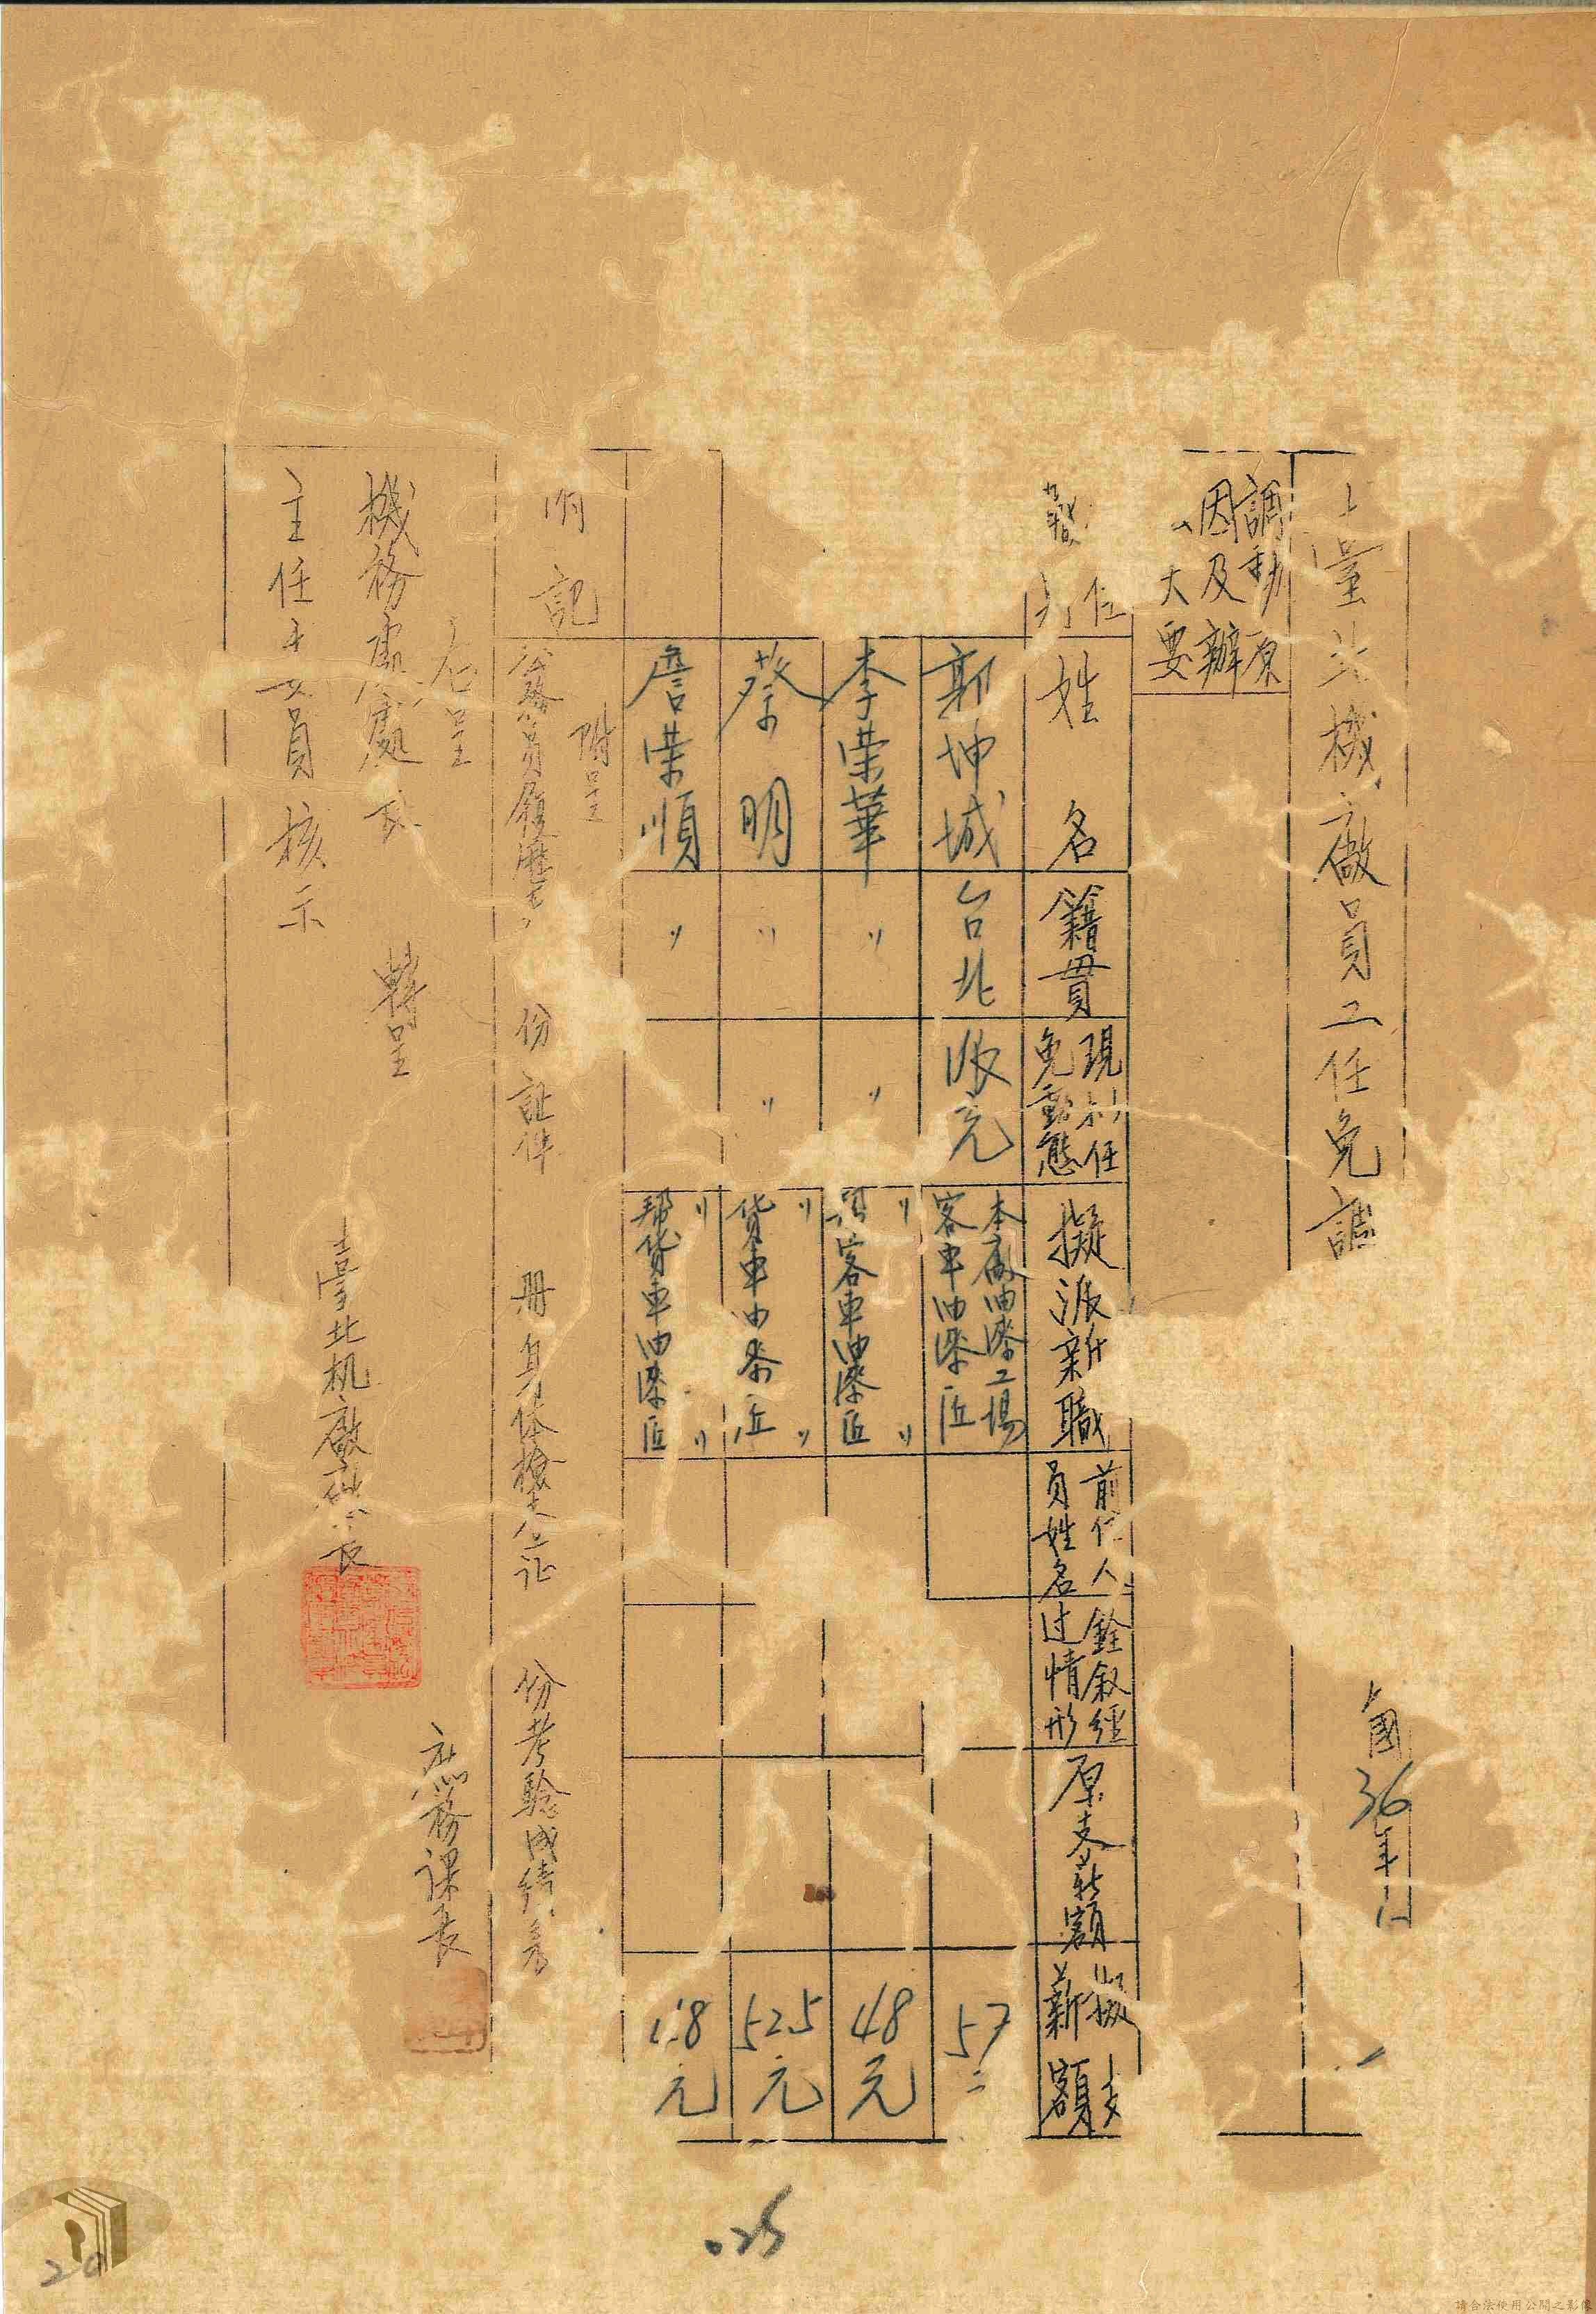 臺北機廠員工任免調
國36年
調動原
因及辦
大要
姓名
籍貫
現別任
免動態
擬派新職
前任人
員姓名
銓叙經
过情形
原支薪額
擬支
薪額
郭坤城
台北
派充
本廠油漆工場
客車油漆匠
57
李荣華
〃
〃
〃 〃
客車油漆匠
48元
蔡明
〃
〃
〃 〃
貨車油漆匠
52.5元
詹荣順
〃
〃 〃
帮貨車油漆匠
8元
附記
附呈
公務員履歷表 份 証件 册 身体檢查证 份 考驗成績表
右呈
機務處處長 轉呈
主任委員核示
臺北机廠廠長
庶務课長
.25
20
請合法使用公開之影像